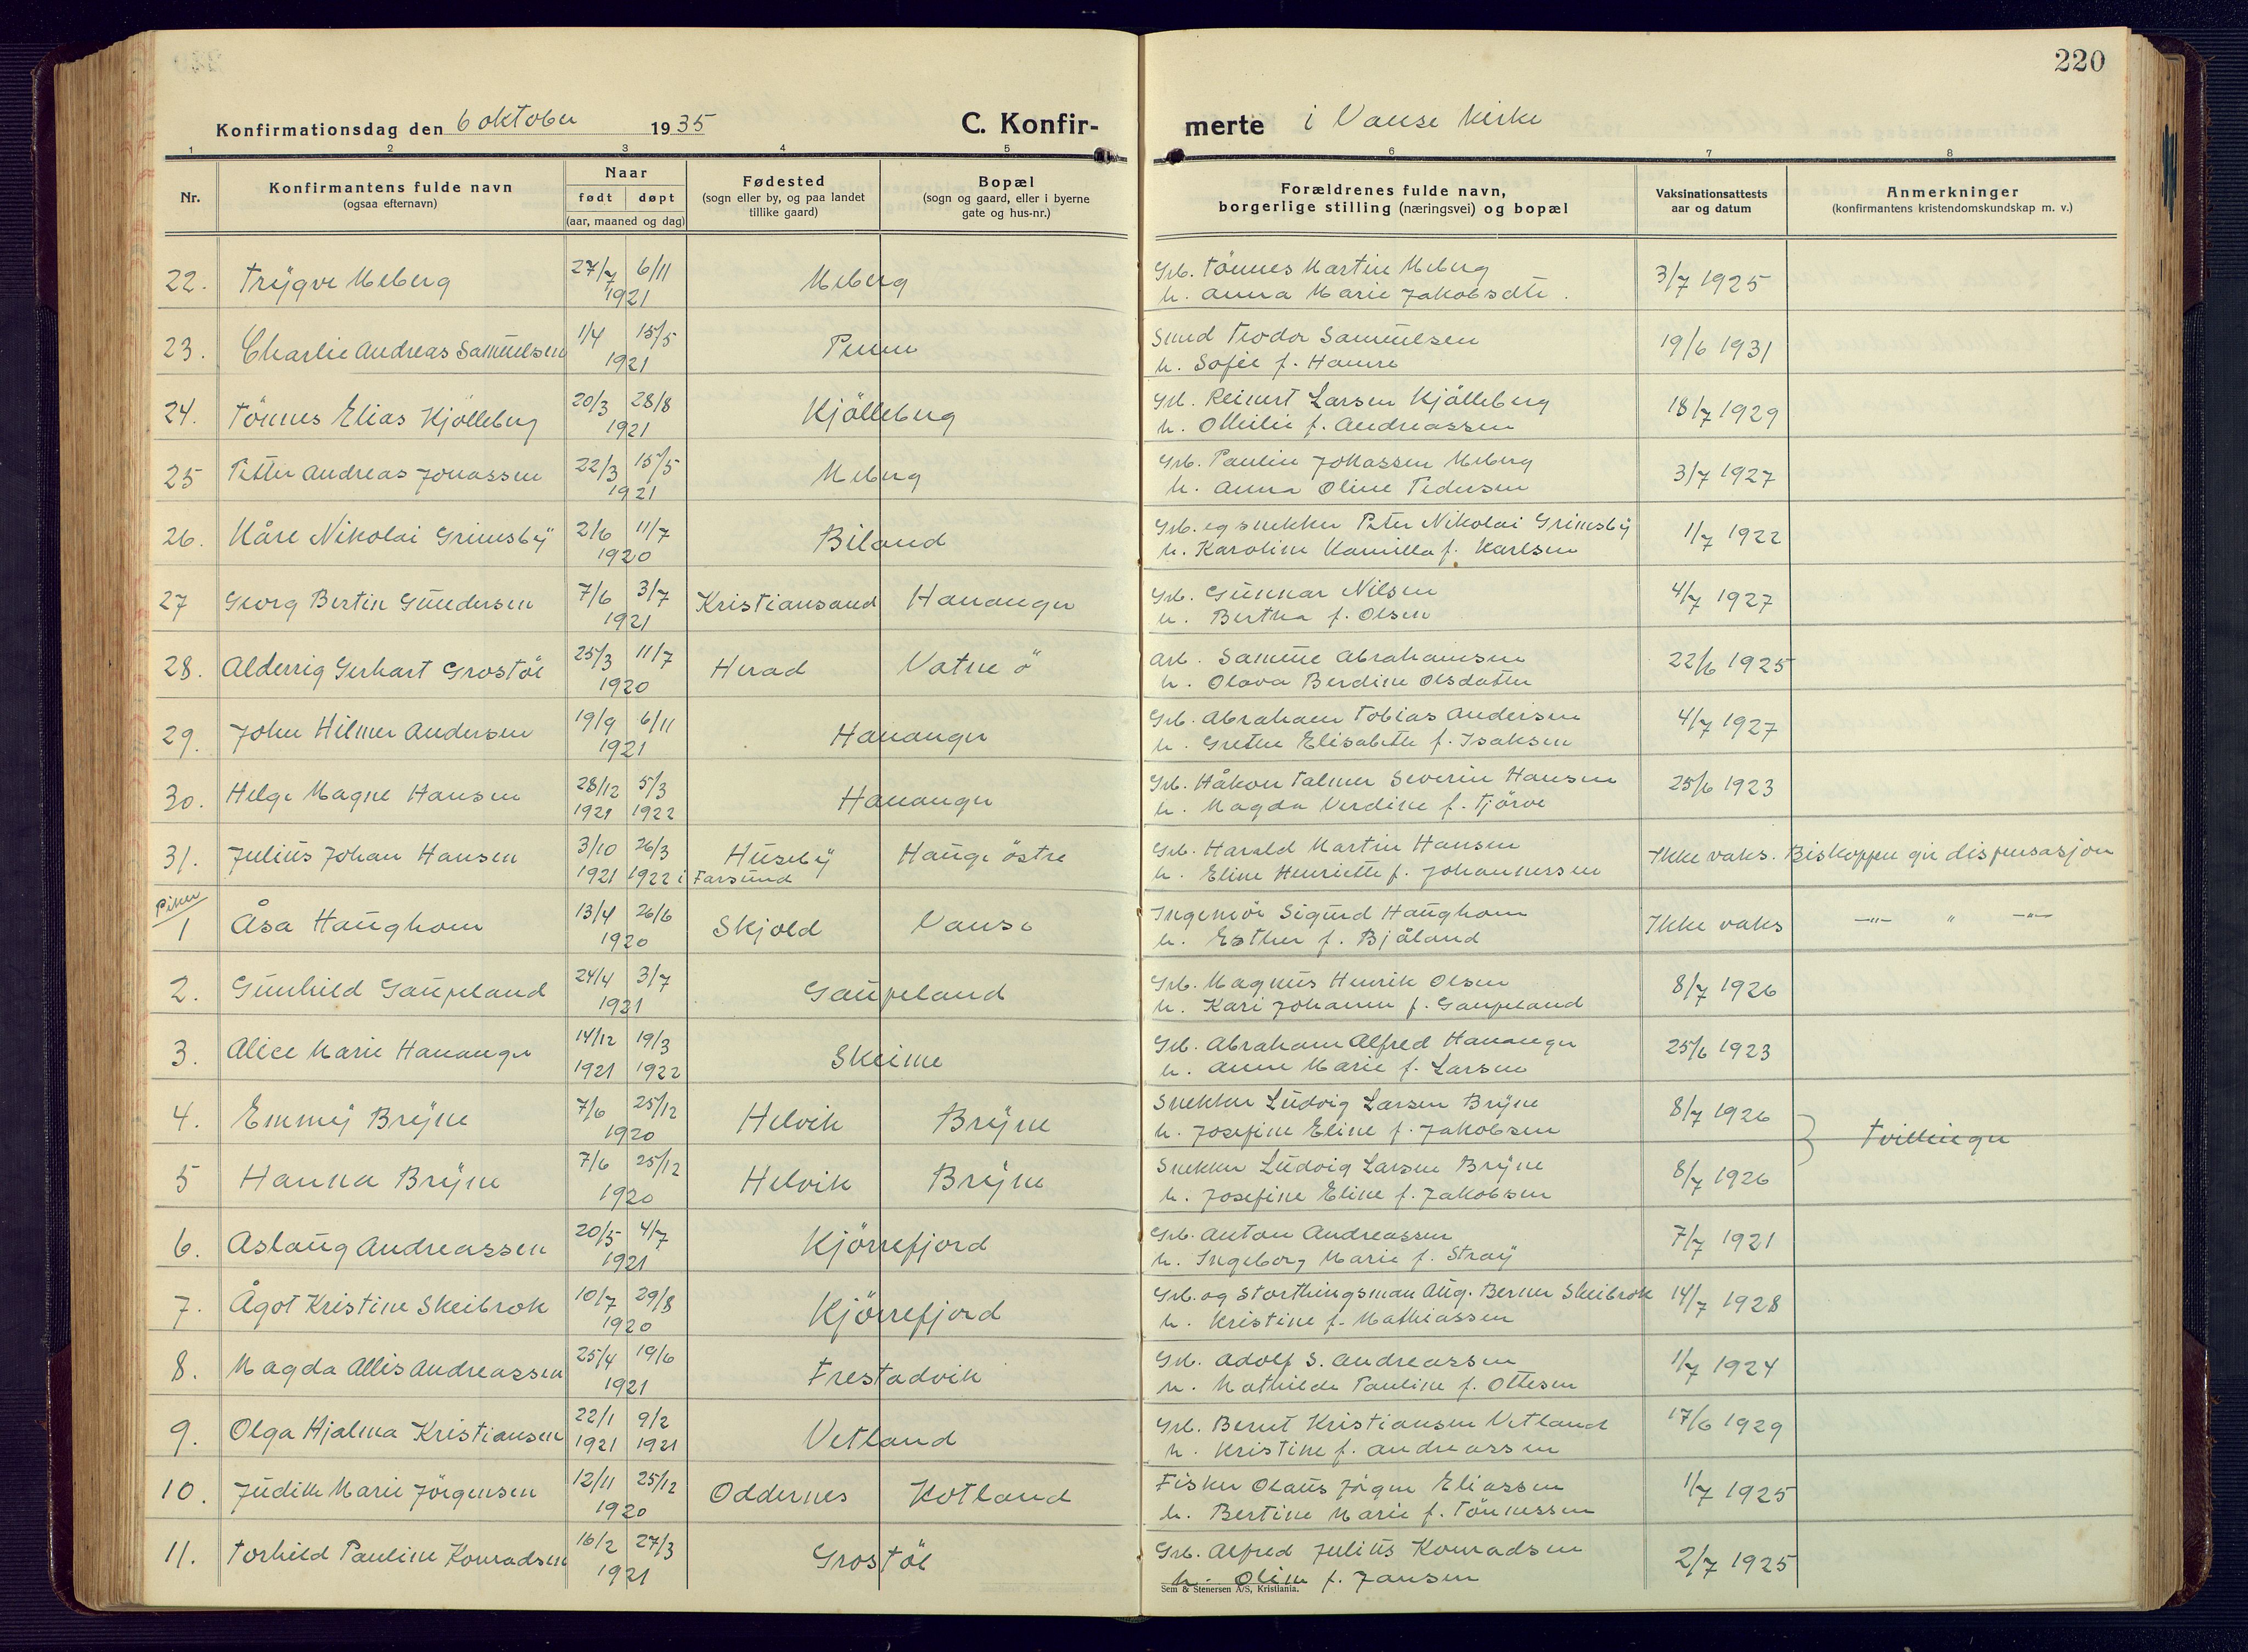 220
Konfirmationsdag den 6 oktober 1935 C. Konfir-
merte i Vanse kirke
1 2 3 4 5 6 7 8
Nr. Konfirmantens fulde navn (ogsaa efternavn) Naar født døpt (aar, maaned og dag) Fødested (sogn eller by, og paa landet tillike gaard) Bopæl (sogn og gaard, eller i byerne gate og hus-nr.) Forældrenes fulde navn, borgerlige stilling (næringsvei) og bopæl Vaksinationsattests aar og datum Anmerkninger (konfirmantens kristendomskundskap m. v.)
22. Trygve Meberg 27/7 6/11 1921 Meberg Grb. Tönnes Martin Meberg 3/7 1925
h. Anna Marie Jakobsdtr.
23. Charlie Andreas Samuelsen 1/4 15/5 1921 Penne Smed Teodor Samuelsen 19/6 1931
h. Sofie f. Hamre
24. Tönnes Elias Kjölleberg 20/3 28/8 1921 Kjölleberg Grb. Reinert Larsen Kjölleberg 18/7 1929
h. Otteilie f. Andreassen
25 Petter Andreas Jonassen 22/3 15/5 1921 Meberg Grb. Paulin Jonassen Meberg 3/7 1927
h. Anna Oline Pedersen
26. Kåre Nikolai Grimsby 2/6 11/7 1920 Biland Grb. og snekker Peter Nikolai Grimsby 1/7 1922
h. Karoline Kamilla f. Karlsen
27 Georg Bertin Gundersen 7/6 3/7 1921 Kristiansand Hananger Grb. Gunnar Nilsen 4/7 1927
h. Bertha f. Olsen
28. Alderrig Gerhart Grostöl 25/3 11/7 1920 Herad Vatne ö Arb. Samme Abrahamsen 22/6 1925
h. Olava Berdine Olsdatter
29. John Hilmer Andersen 19/9 6/11 1921 Hananger Grb. Abraham Tobias Andersen 4/7 1927
h. Grethe Elisabeth f. Isaksen
30. Helge Magne Hansen 28/12 1921 5/3 1922 Hananger Grb. Håkon Talmer Severin Hansen 25/6 1923
h. Magda Verdine f. Tjörve
31. Julius Johan Hansen 3/10 1921 26/3 1922 i Farsund Huseby Hauge östre Grb. Harald Martin Hansen Ikke vaks. Biskoppen gir dispensasjon
h. Eline Henriette f. Johannessen
Piker
1 Åsa Haughom 13/4 26/6 1920 Skjold Vanse Ingeniör Sigurd Haughom Ikke vaks —"— " —"—
h. Esther f. Bjåland
2. Gunhild Gaupeland 24/4 3/7 1921 Gaupeland Grb. Magnus Henrik Olsen 8/7 1926
h. Kari Johanne f. Gaupeland
3. Alice Marie Hananger 14/12 1921 19/3 1922 Skeime Grb. Abraham Alfred Hananger 25/6 1923
h. Anne Marie f. Larsen
4. Emmy Bryne 7/6 25/12 1920 Helvik Bryne Snekker Ludvig Larsen Bryne 8/7 1926
h. Josefine Eline f. Jakobsen
Tvillinger
5 Hanna Bryne 7/6 25/12 1920 Helvik Bryne Snekker Ludvig Larsen Bryne 8/7 1926
h. Josefine Eline f. Jakobsen
6. Aslaug Andreassen 20/5 4/7 1921 Kjörrefjord Grb. Anton Andreassen 7/7 1921
h. Ingeborg Marie f. Stray
7. Ågot Kristine Skeibrok 10/7 29/8 1920 Kjörrefjord Grb. og Storthingsman Aug. Berner Skeibrok 14/7 1928
h. Kristine f. Mathiassen
8. Magda Allis Andreassen 25/4 19/6 1921 Frestadvik Grb. Adolf S. Andreassen 1/7 1924
h. Mathilde Pauline f. Ottesen
9. Olga Hjalma Kristiansen 22/1 1921 9/2 1921 Vetland Grb. Bernt Kristiansen Vetland 17/6 1929
h. Kristine f. Andreassen
10. Judith Marie Jörgensen 12/11 25/12 1920 Oddernes Kotland Fisker Olaus Jörgen Eliassen 1/7 1925
h. Bertine Marie f. Tönnessen
11. Torhild Pauline Konradsen 16/2 27/3 1921 Grostöl Grb. Alfred Julius Konradsen 2/7 1925
h. Oline f. Jansen
Sem & Stenersen A/S, Kristiania.